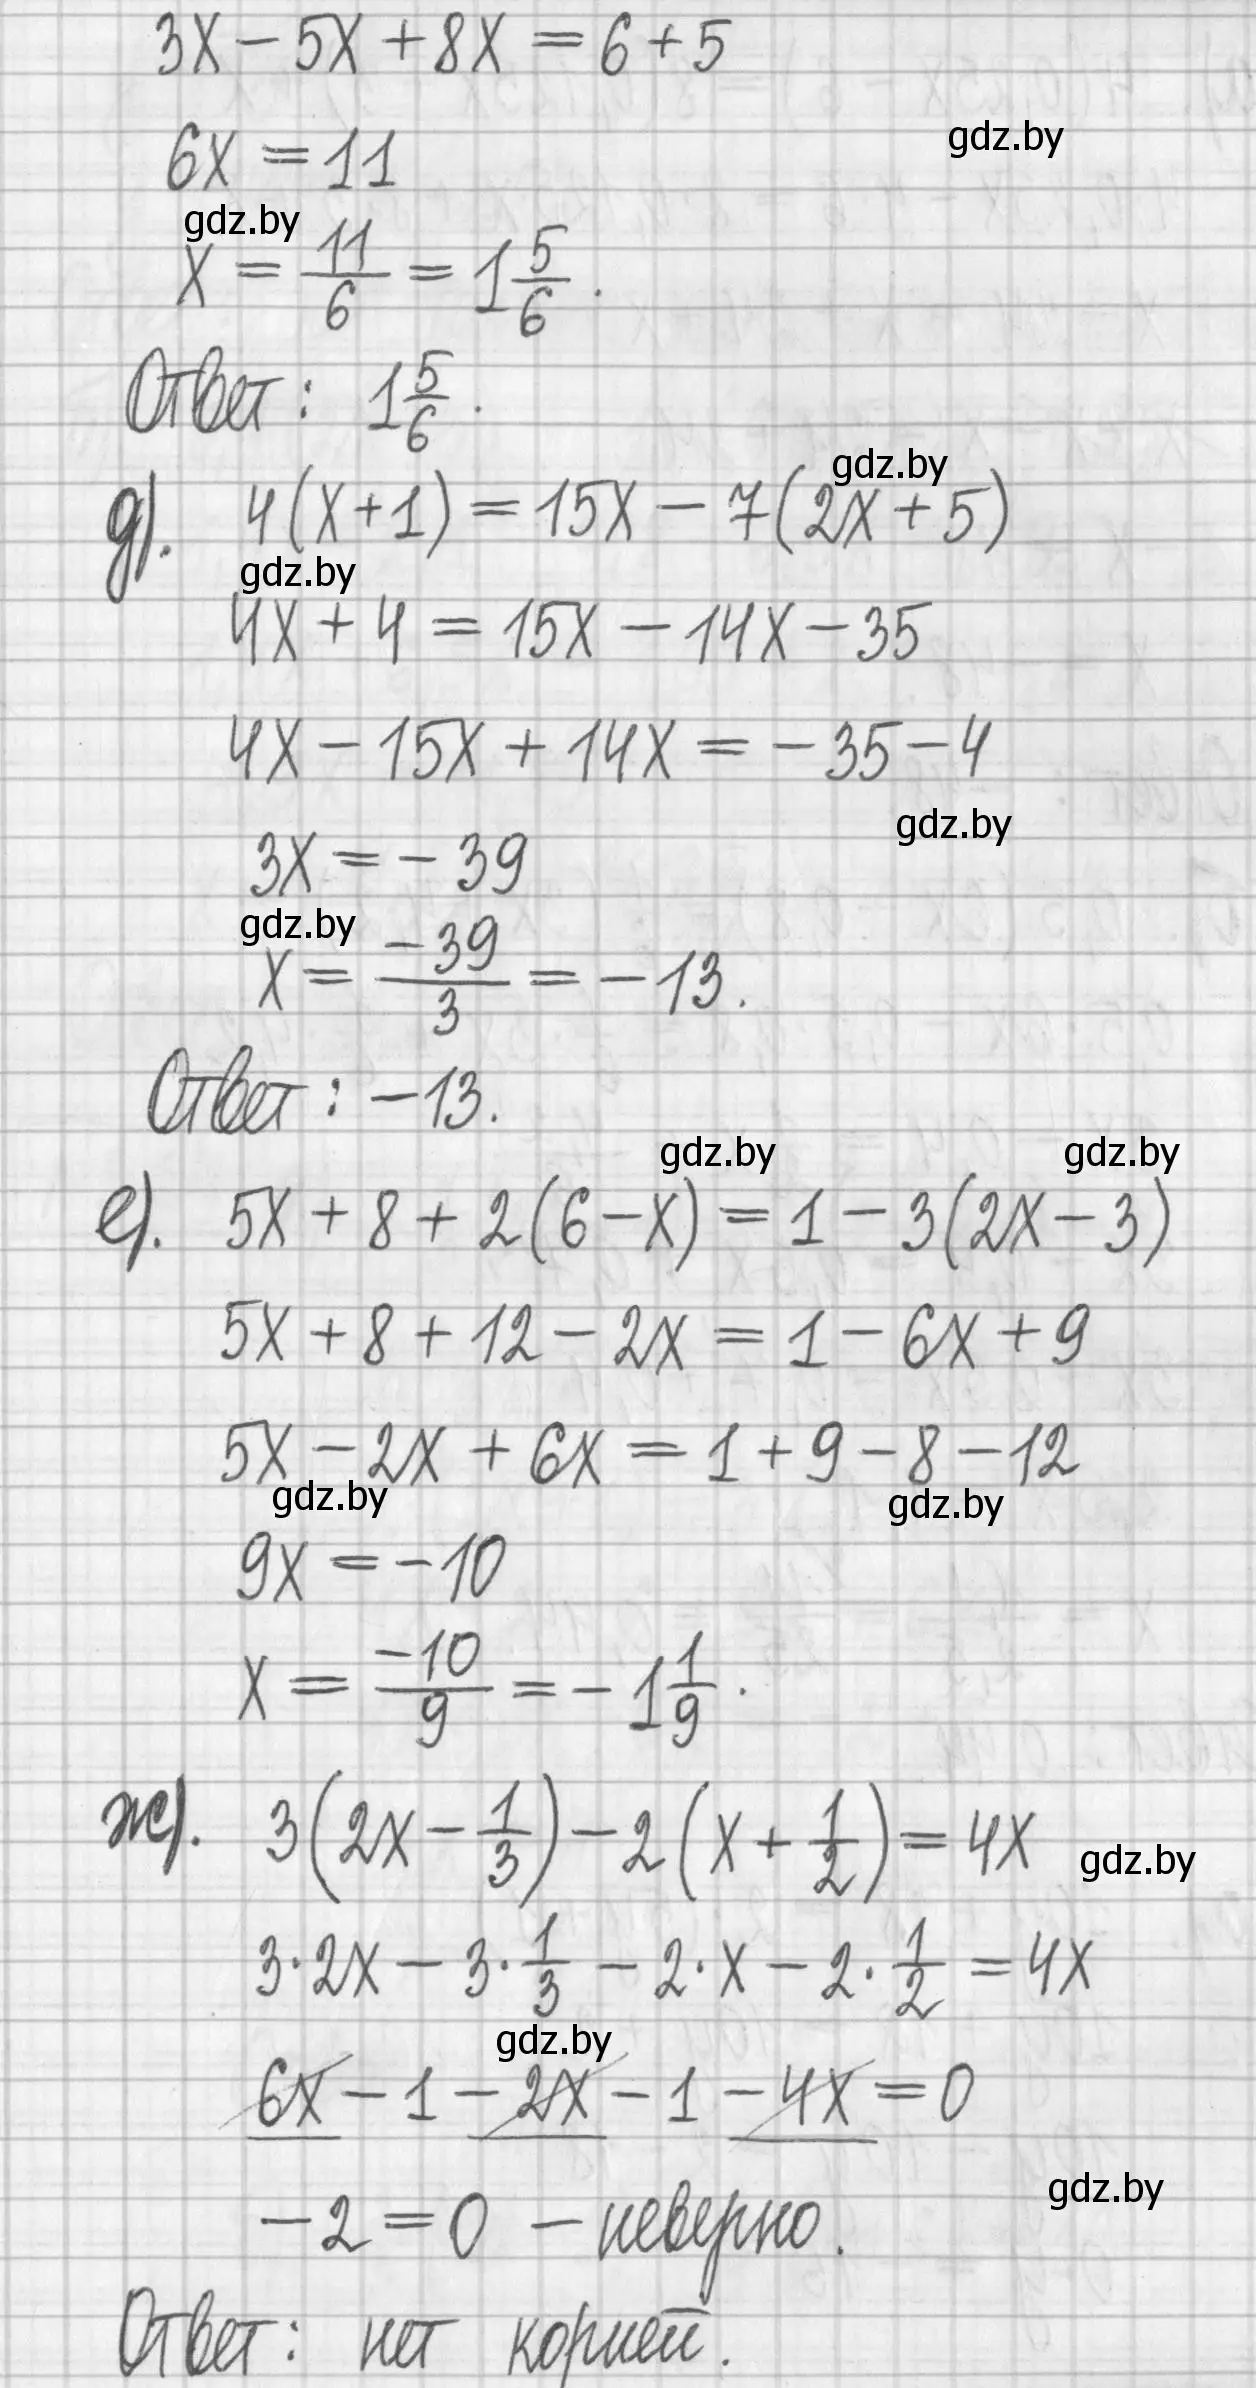 3x − 5x + 8x = 6 + 5
gdz.by
6x = 11
gdz.by
x = 11/6 = 1 5/6.
Ответ: 1 5/6.
gdz.by
д). 4(x+1) = 15x − 7(2x+5)
gdz.by
4x + 4 = 15x − 14x − 35
4x − 15x + 14x = −35 − 4
gdz.by
3x = −39
gdz.by
x = −39/3 = −13.
Ответ: −13.
gdz.by gdz.by
е). 5x + 8 + 2(6−x) = 1 − 3(2x − 3)
5x + 8 + 12 − 2x = 1 − 6x + 9
5x − 2x + 6x = 1 + 9 − 8 − 12
gdz.by gdz.by
9x = −10
x = −10/9 = −1 1/9.
ж). 3(2x − 1/3) − 2(x + 1/2) = 4x
gdz.by
3·2x − 3·1/3 − 2·x − 2·1/2 = 4x
gdz.by
6x − 1 − 2x − 1 − 4x = 0
gdz.by
−2 = 0 − неверно.
Ответ: нет корней.